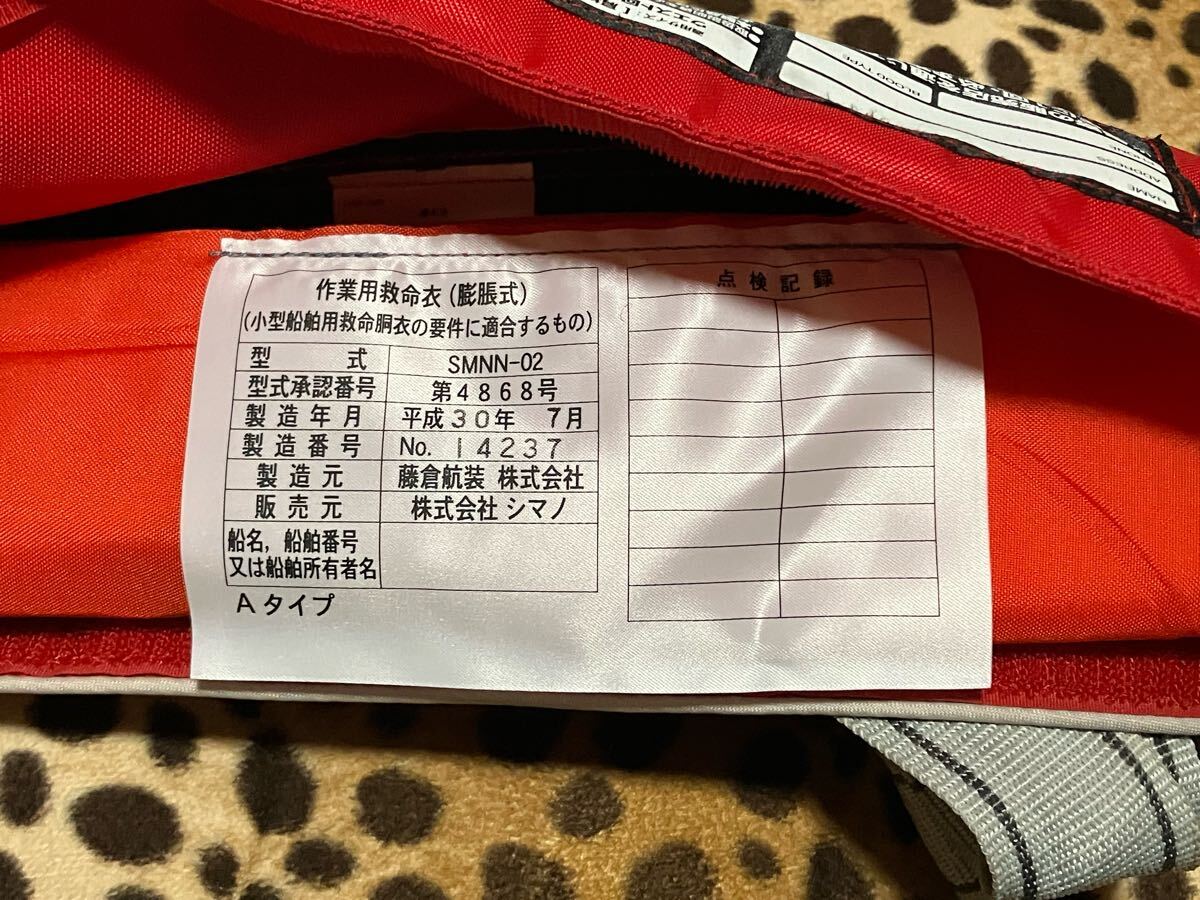 作業用救命衣（膨脹式）
（小型船舶用救命胴衣の要件に適合するもの）
型式 SMNN-02
型式承認番号 第4868号
製造年月 平成30年 7月
製造番号 No. 14237
製造元 藤倉航装 株式会社
販売元 株式会社 シマノ
船名，船舶番号
又は船舶所有者名
Aタイプ
点検記録
NAME
ADDRESS
BLOOD TYPE